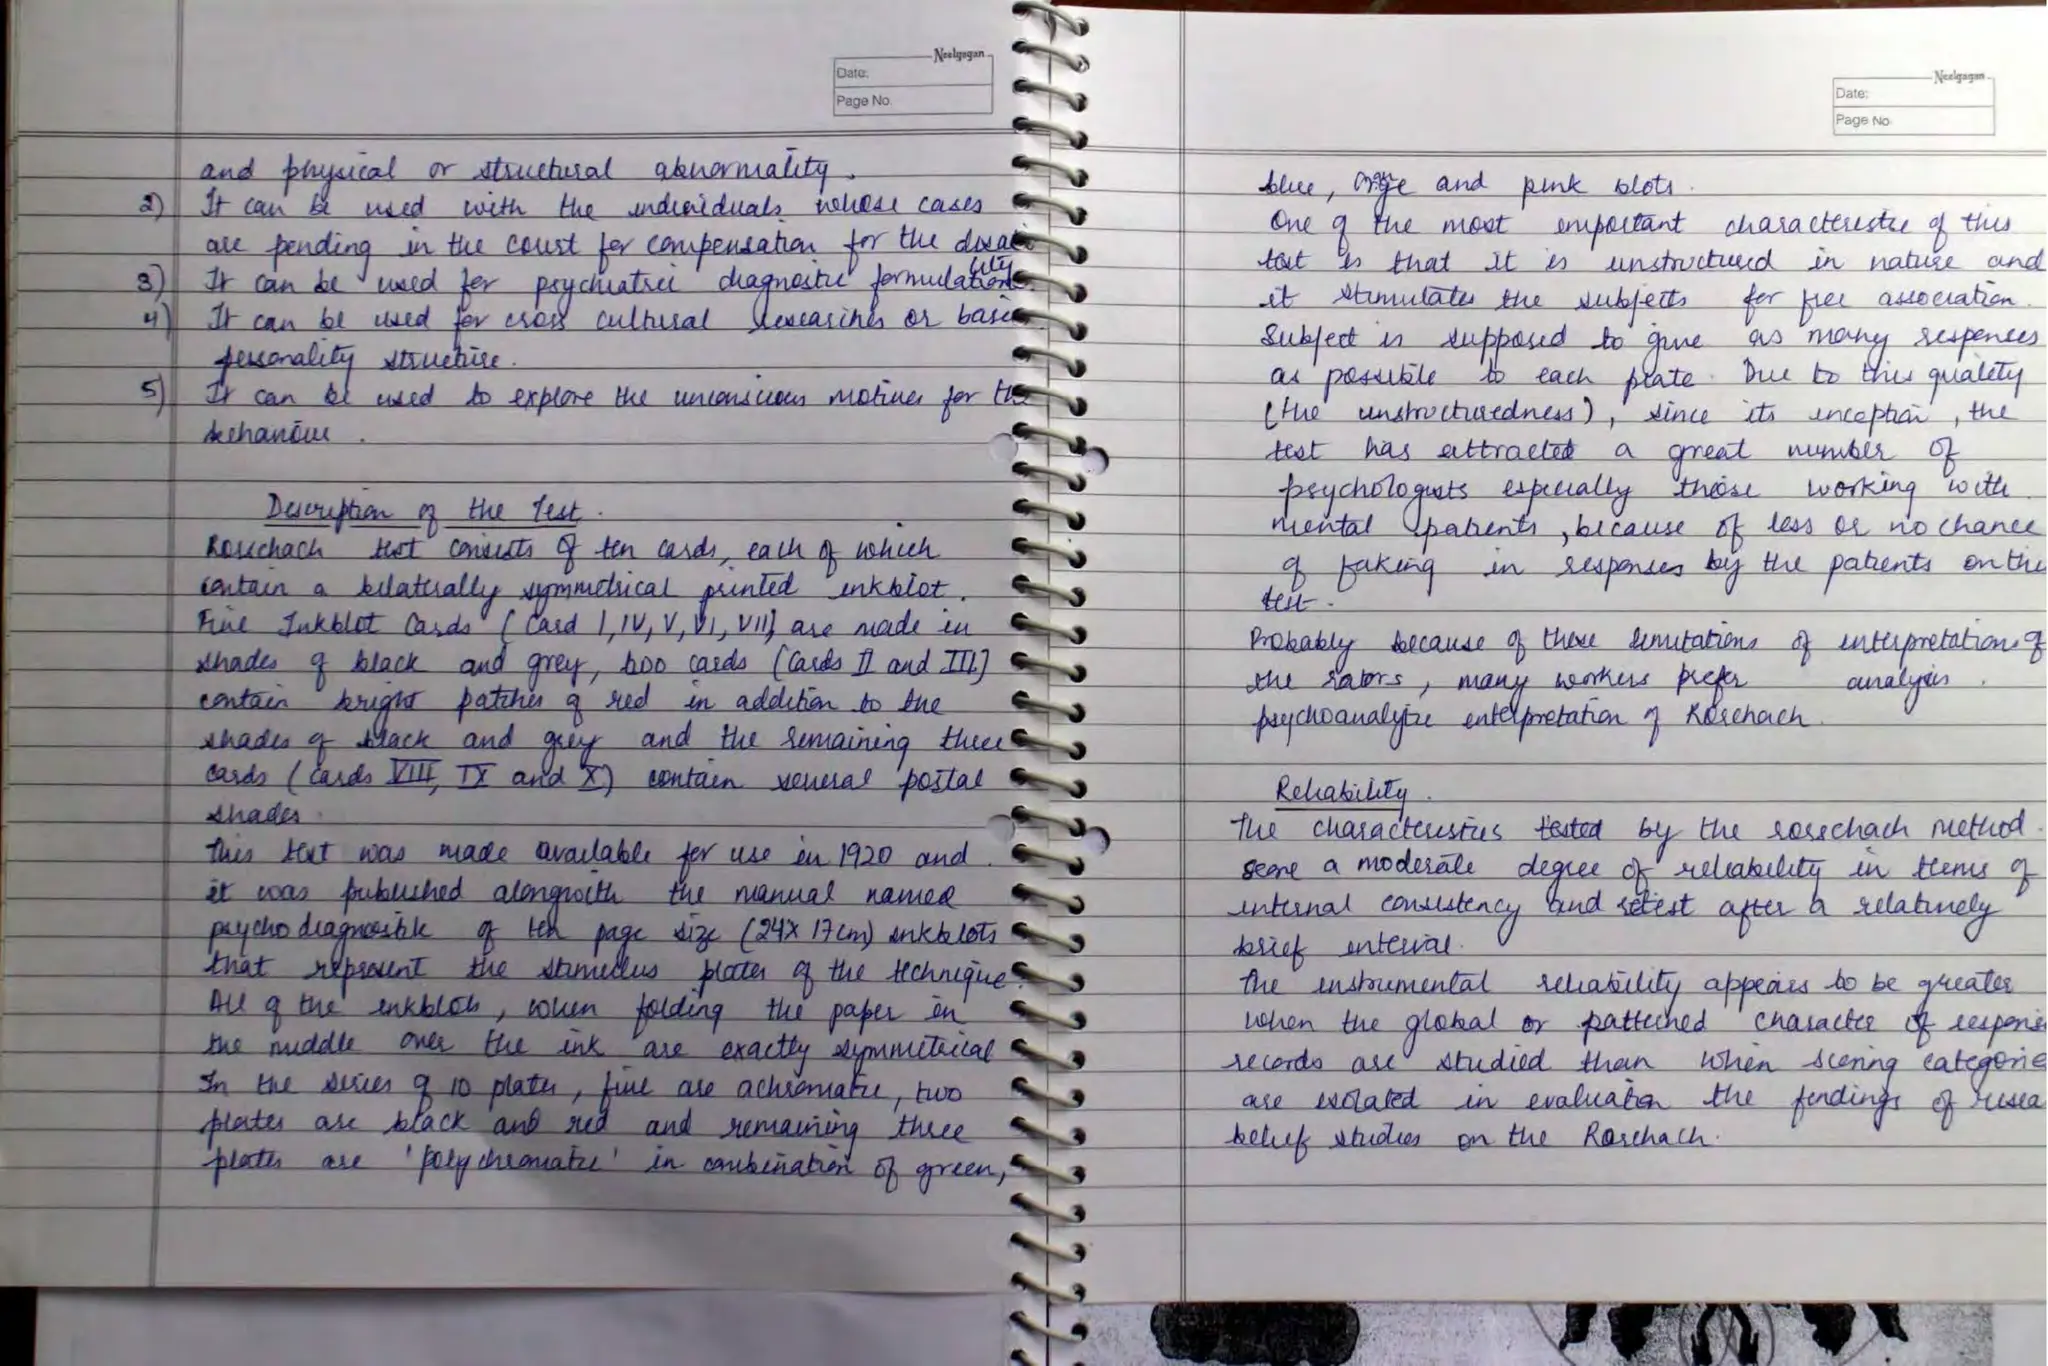 Neelgagan
Date:
Page No.
and physical or structural abnormality.
2) It can be used with the individuals whose cases
are pending in the court for compensation for the disabi
lity
3) It can be used for psychiatric diagnostic formulations.
4) It can be used for cross cultural researches or basic
personality structure.
5) It can be used to explore the unconscious motives for the
behaviour.
Description of the Test.
Rorschach test consists of ten cards, each of which
contain a bilaterally symmetrical printed inkblot.
Five Inkblot Cards (Card I, IV, V, VI, VII) are made in
shades of black and grey, two cards (Cards II and III)
contain bright patches of red in addition to the
shades of black and grey and the remaining three
cards (Cards VIII, IX and X) contain several postal
shades.
This test was made available for use in 1920 and
it was published alongwith the manual named
psychodiagnostik of ten page size (24x17cm) inkblots
that represent the stimulus plates of the technique.
All of the inkblots, when folding the paper in
the middle over the ink are exactly symmetrical
In the series of 10 plates, five are achromatic, two
plates are black and red and remaining three
plates are 'polychromatic' in combination of green,
Neelgagan
Date:
Page No.
blue, orange and pink blots.
One of the most important characteristic of this
test is that it is unstructured in nature and
it stimulates the subjects for free association.
Subject is supposed to give as many responses
as possible to each plate. Due to this quality
(the unstructuredness), since its inception, the
test has attracted a great number of
psychologists especially those working with
mental patients, because of less or no chance
of faking in responses by the patients on the
test.
Probably because of these limitations of interpretations of
the rators, many workers prefer analysis.
psychoanalytic interpretation of Rorschach.
Reliability.
The characteristics tested by the rorschach method
score a moderate degree of reliability in terms of
internal consistency and retest after a relatively
brief interval.
The instrumental reliability appears to be greater
when the global or patterned character of response
records are studied than when scoring categories
are isolated in evaluation the findings of resea
belief studies on the Rorschach.